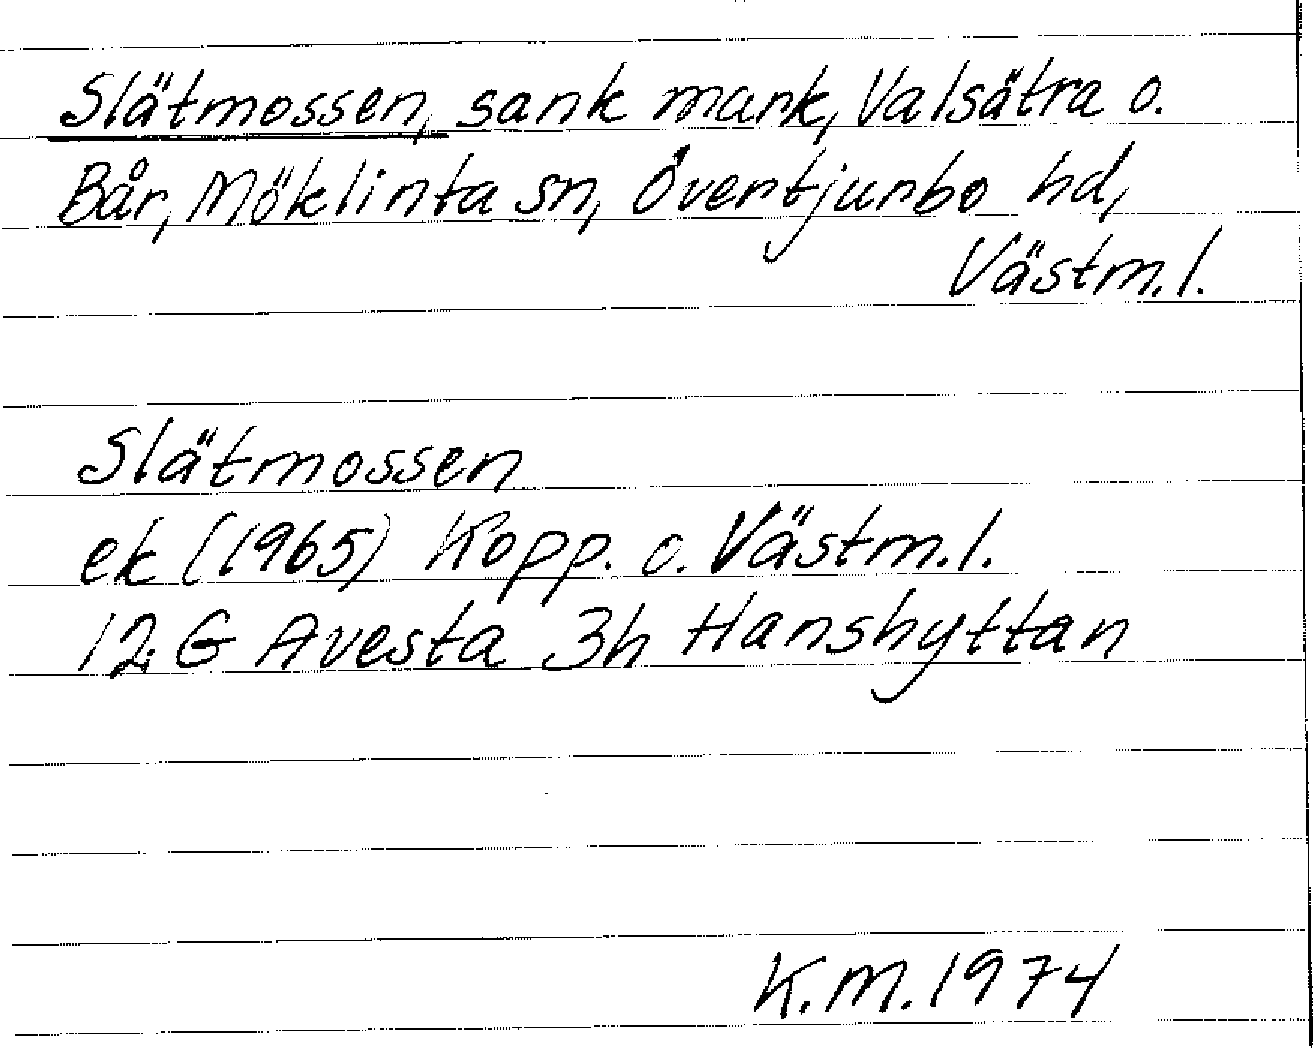 Slätmossen, sank mark, Valsätra o.
Bår, Möklinta sn, Övertjurbo hd,
Västm.l.
Slätmossen
ek (1965) Kopp. o. Västm.l.
12 G Avesta 3h Hanshyttan
K.M. 1974